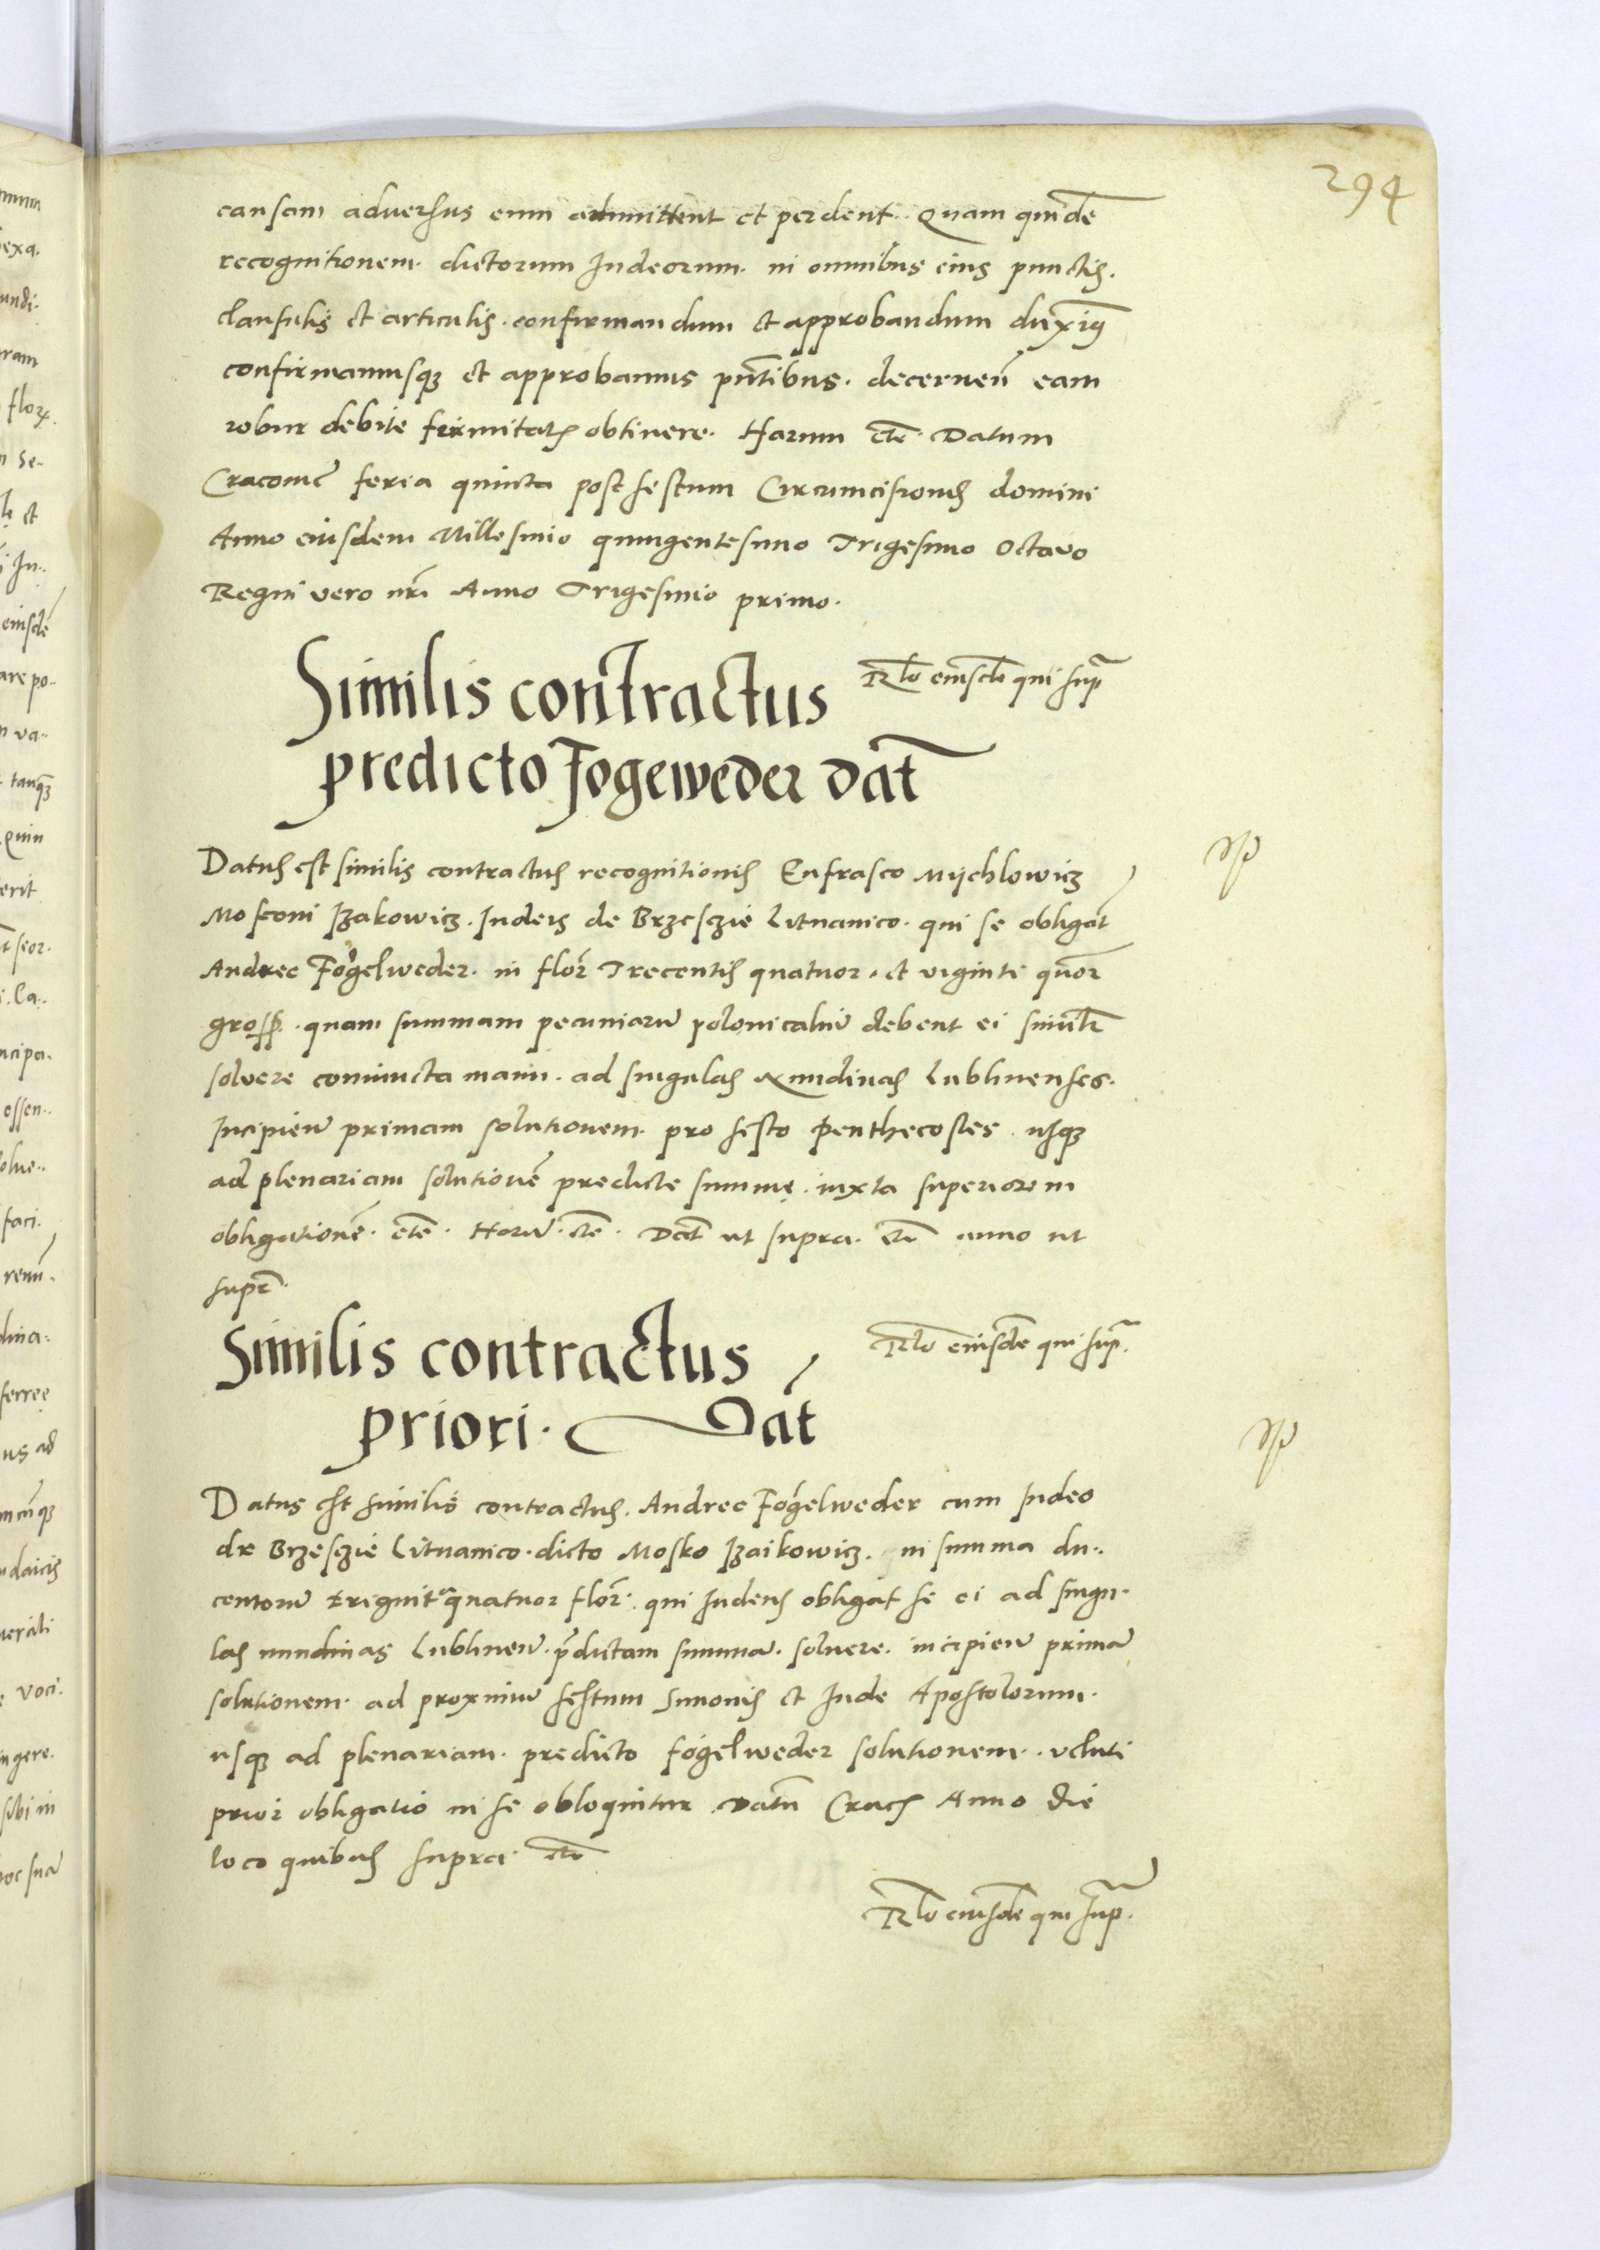 294
causam adversus eum admittent et perdent. Quam quidẽ
recognitionem. dictorum Iudeorum. in omnibus eius punctis.
clausulis et articulis. confirmandum et approbandum duximus
confirmamusque et approbamus pñtibus. decerneñ eam
robur debite firmitatis obtinere. Harum etc̃. Datum
Cracovie feria quinta post festum Circumcisionis domini
Anno eiusdem Millesimo quingentesimo Trigesimo Octavo
Regni vero nr̃i Anno Trigesimo primo.
Similis contractus
Rl̃o eiusdẽ qui sup̃
predicto Fogeweder dat̃
Datus est similis contractus recognitionis Enfrasco Mychlowicz
Mosconi Izakowicz. Iudeis de Brzesczie Lituanico. qui se obligat̃
Andree Fogelweder. in flor̃ Trecentis quatuor. et viginti quor̃
gross. quam summam pecuniarũ polonicaliũ debent ei simul̃
solvere coniuncta manu. ad singulas Nundinas Lublinenses.
Incipieñ primam solutionem. pro festo Penthecostes. usque
ad plenariam solutionẽ predicte summe. iuxta superiorem
obligationẽ. etc̃. Harũ. etc̃. Dat̃ ut supra. etc̃ anno ut
supr̃.
Similis contractus
Rl̃o eiusdẽ qui sup̃.
priori. Dat̃
Datus est similis contractus. Andree Fogelweder cum Iudeo
de Brzesczie Lituanico. dicto Mosko Izaikowicz. in summa du..
centorũ trigint̃a quatuor flor̃. qui Iudeus obligat se ei ad singu.
las nundinas Lublineñ. p̃dictam summã. solvere. incipieñ primã
solutionem. ad proximũ festum Simonis et Iude Apostolorum.
usque ad plenariam. predicto fogelweder solutionem. veluti
prior obligatio in se obloquitur. Datũ Crac̃ Anno die
loco quibus supra. etc̃
Rl̃o eiusdẽ qui sup̃.